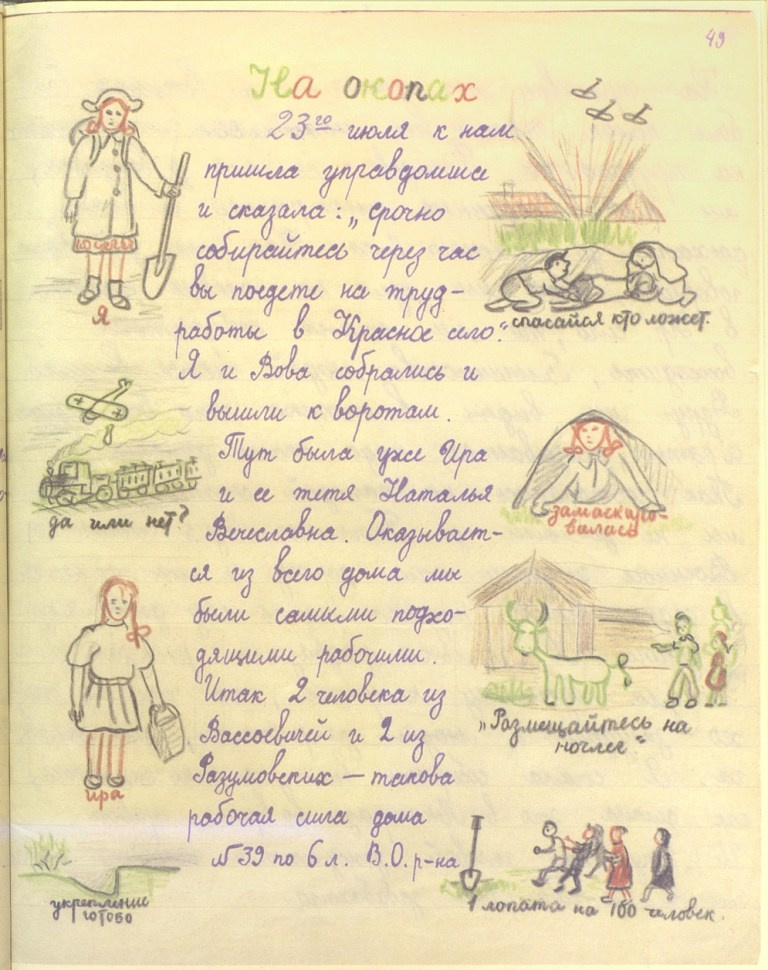 49
На окопах
23го июля к нам
пришла управдомша
и сказала: „срочно
собирайтесь через час
вы поедете на труд-
работы в Красное село."
Я и Вова собрались и
вышли к воротам.
Тут была уже Ира
и ее тетя Наталья
Вечеславна. Оказывает-
ся из всего дома мы
были самыми подхо-
дящими рабочими.
Итак 2 человека из
Вассоевичей и 2 из
Разумовских — такова
рабочая сила дома
№ 39 по 6 л. В.О. р-на
Я
да или нет?
ира
укрепление
готово
спасайся кто может.
замаскиро-
валась
„Размещайтесь на
ночлег."
1 лопата на 100 человек.